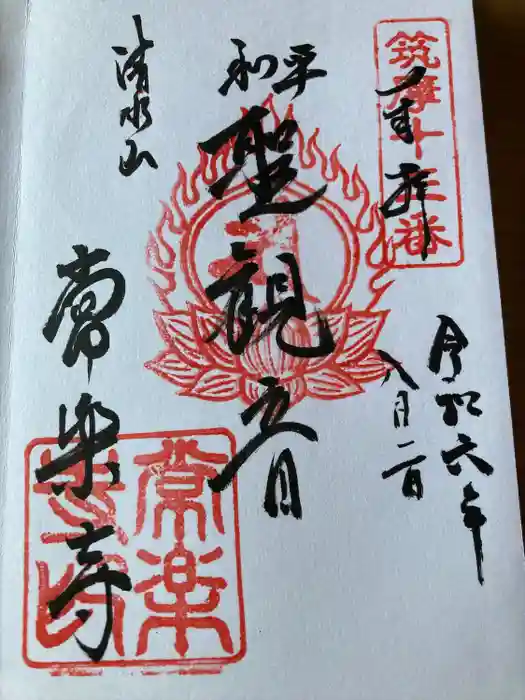 筑摩十三番
奉拝
令和六年
八月二日
平和
聖観音
清水山
常楽寺
常楽
寺印